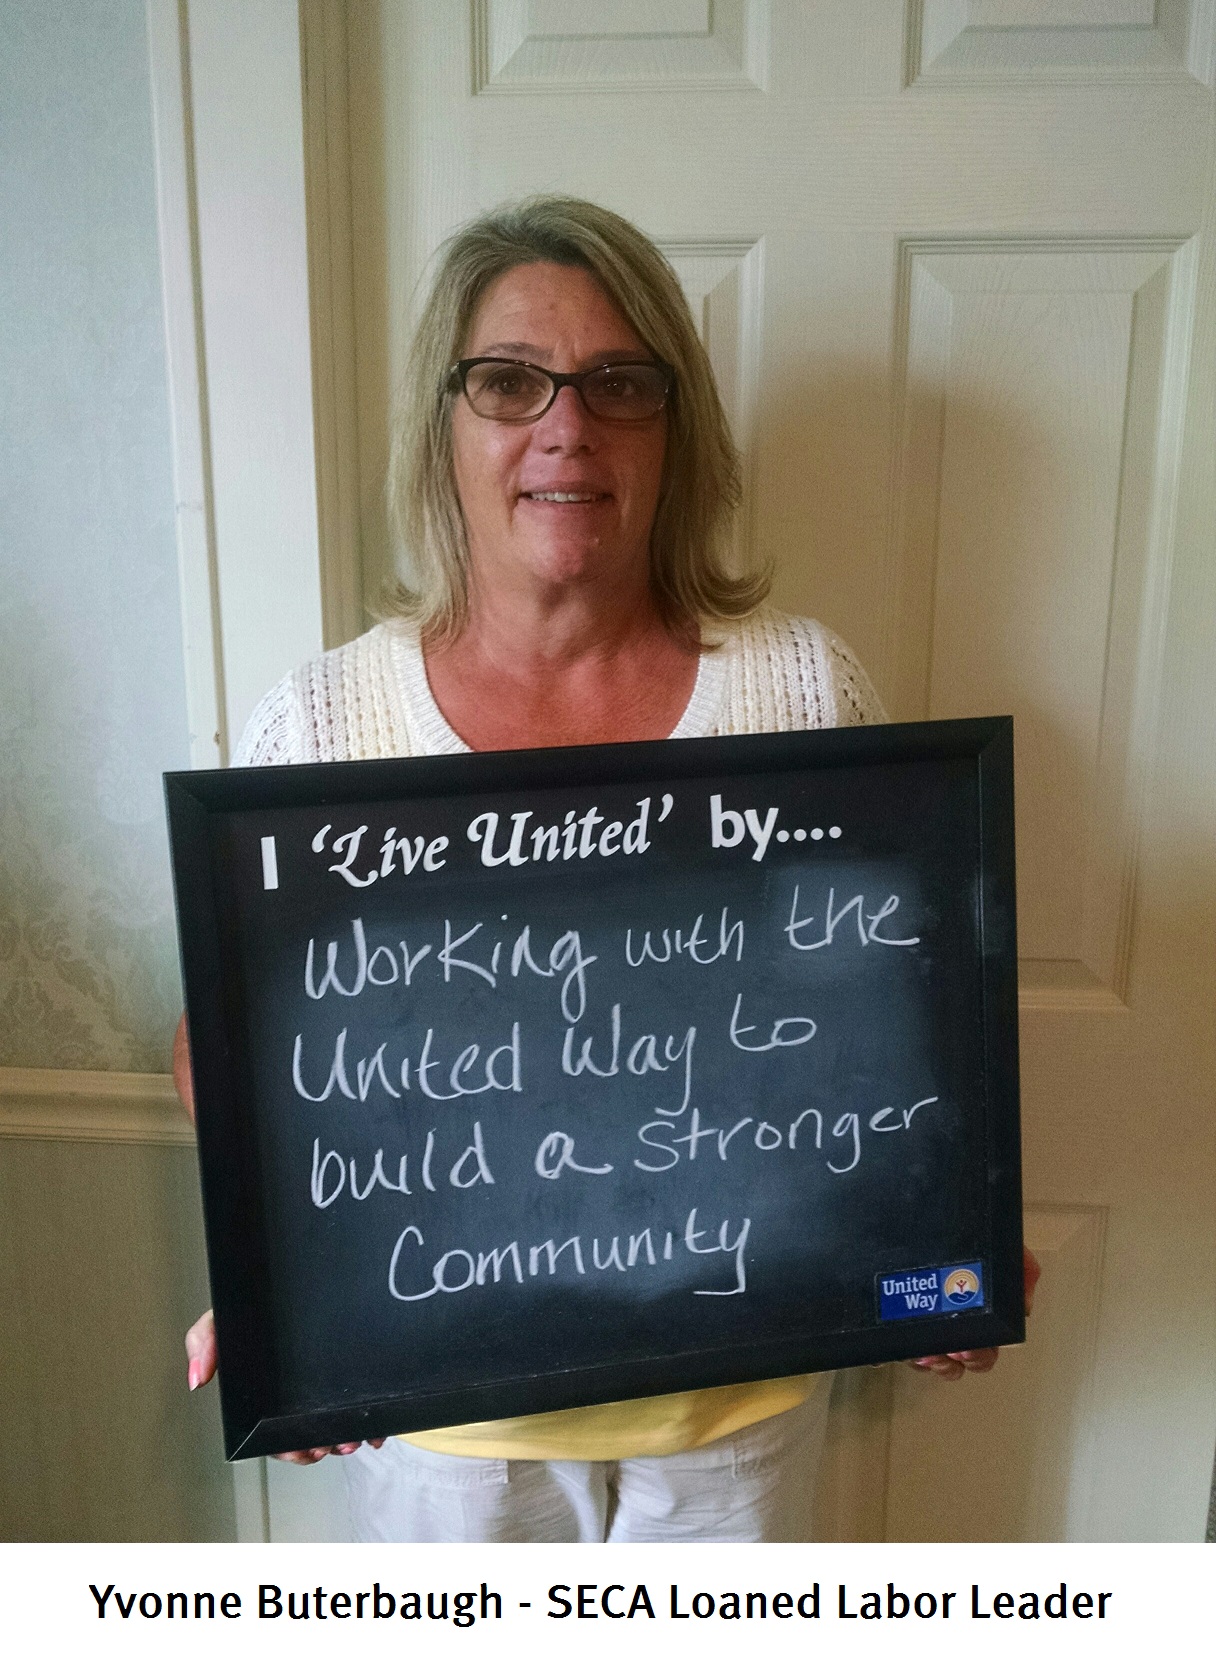 I ‘Live United’ by....
Working with the
United Way to
build a stronger
Community
United
Way
Yvonne Buterbaugh - SECA Loaned Labor Leader